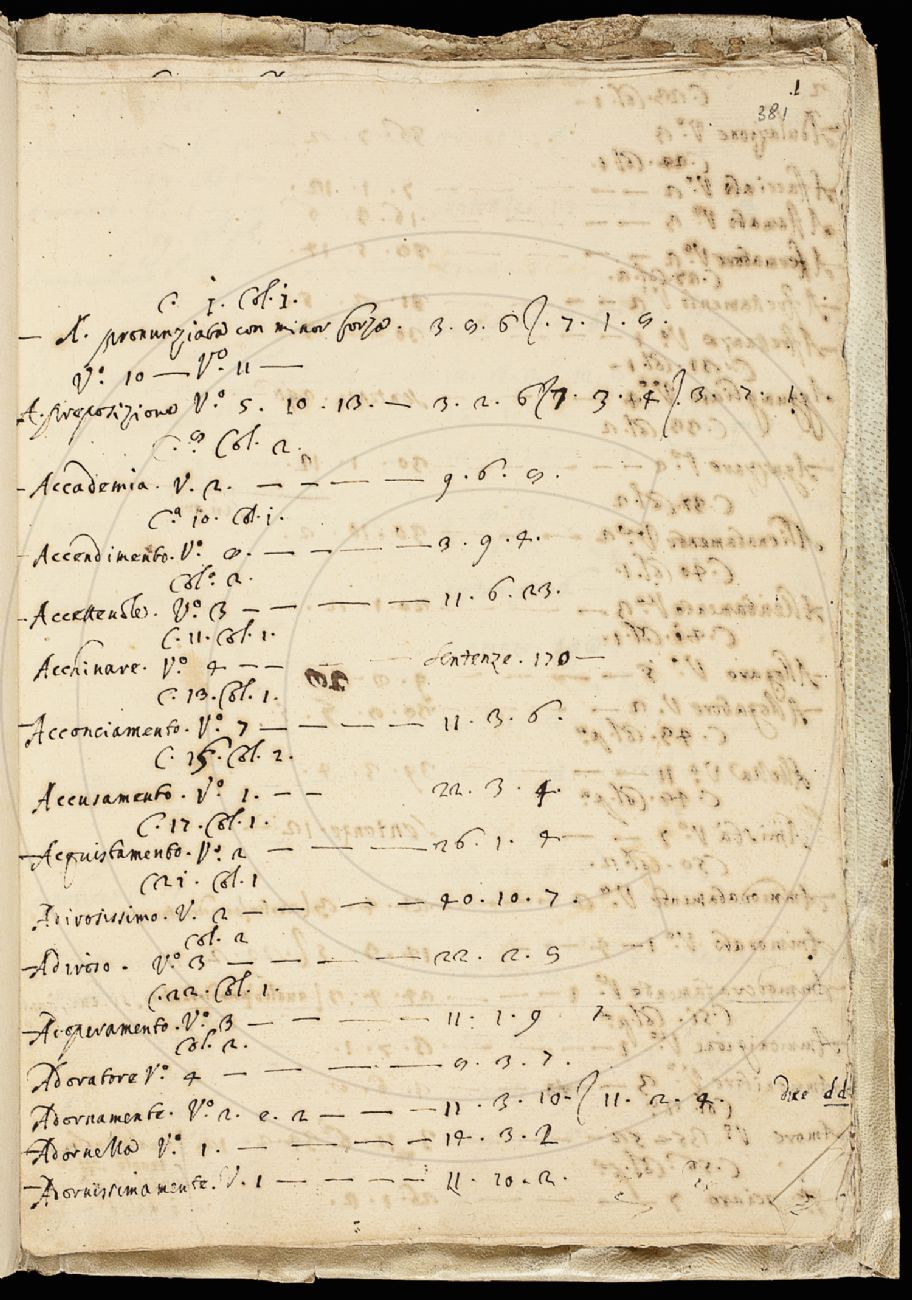 .1
381
C. 1. Col. 1.
— A. pronunziata con minor forza. 3. 9. 6 /. 7. 1. 9.
V.º 10 — V.º 11 —
A. preposizione V.º 5. 10. 13. — 3. 2. 6 / 7. 3. 4 /. 3. 7. 1.
C. 9 Col. 2.
- Accademia. V. 2. — — — — 9. 6. 9.
C.ª 10. Col. 1.
- Accendimento. V.º 8. — — — — 3. 9. 4.
Col.º 2.
- V.º 3 — — — — 11. 6. 23.
C. 11. Col. 1.
Acchinare. V.º 4 — — — — Sentenze. 170 —
C. 13. Col. 1.
- Acconciamento. V.º 7 — — — — 11. 3. 6.
C. 15. Col. 2.
Accusamento. V.º 1. — — 22. 3. 4.
C. 17. Col. 1.
- Acquistamento. V.º 2 — — — — 26. 1. 4
C 21. Col. 1
Adirosissimo. V. 2 — — — — 40. 10. 7.
Col. 2
- Adiroso. V.º 3 — — — — 22. 2. 9
C. 22. Col. 1.
- Adoperamento. V.º 3 — — — — 11. 1. 9
Col. 2.
Adoratore V.º 4 — — — — 9. 3. 7.
Adornamento. V.º 2. e. 2 — — — 11. 3. 10 - / 11. 2. 4. due dd
- Adornella V.º 1. — — — — 14. 3. 2
- Adornissimamente. V. 1 — — — — 11. 10. 2.